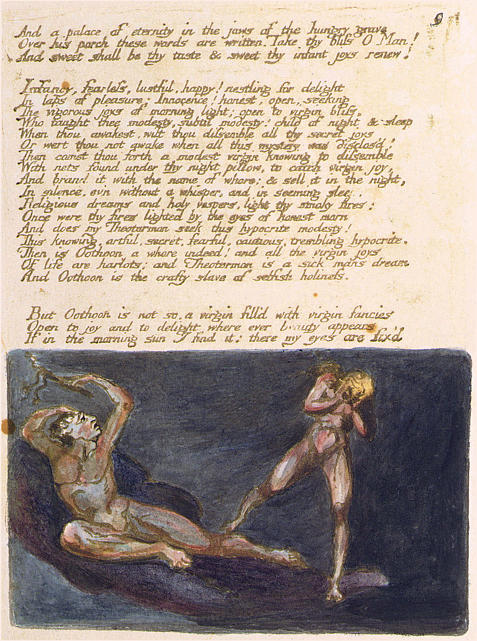 9
And a palace of eternity in the jaws of the hungry grave
Over his porch these words are written. Take thy bliss O Man!
And sweet shall be thy taste & sweet thy infant joys renew!
Infancy, fearless, lustful, happy! nestling for delight
In laps of pleasure; Innocence! honest, open, seeking
The vigorous joys of morning light; open to virgin bliss,
Who taught thee modesty, subtil modesty! child of night & sleep
When thou awakest, wilt thou dissemble all thy secret joys
Or wert thou not awake when all this mystery was disclos'd!
Then com'st thou forth a modest virgin knowing to dissemble
With nets found under thy night pillow, to catch virgin joy,
And brand it with the name of whore; & sell it in the night,
In silence, ev'n without a whisper, and in seeming sleep;
Religious dreams and holy vespers, light thy smoky fires;
Once were thy fires lighted by the eyes of honest morn
And does my Theotormon seek this hypocrite modesty!
This knowing, artful, secret, fearful, cautious, trembling hypocrite.
Then is Oothoon a whore indeed! and all the virgin joys
Of life are harlots; and Theotormon is a sick mans dream
And Oothoon is the crafty slave of selfish holiness.
But Oothoon is not so, a virgin fill'd with virgin fancies
Open to joy and to delight where ever beauty appears
If in the morning sun I find it; there my eyes are fix'd